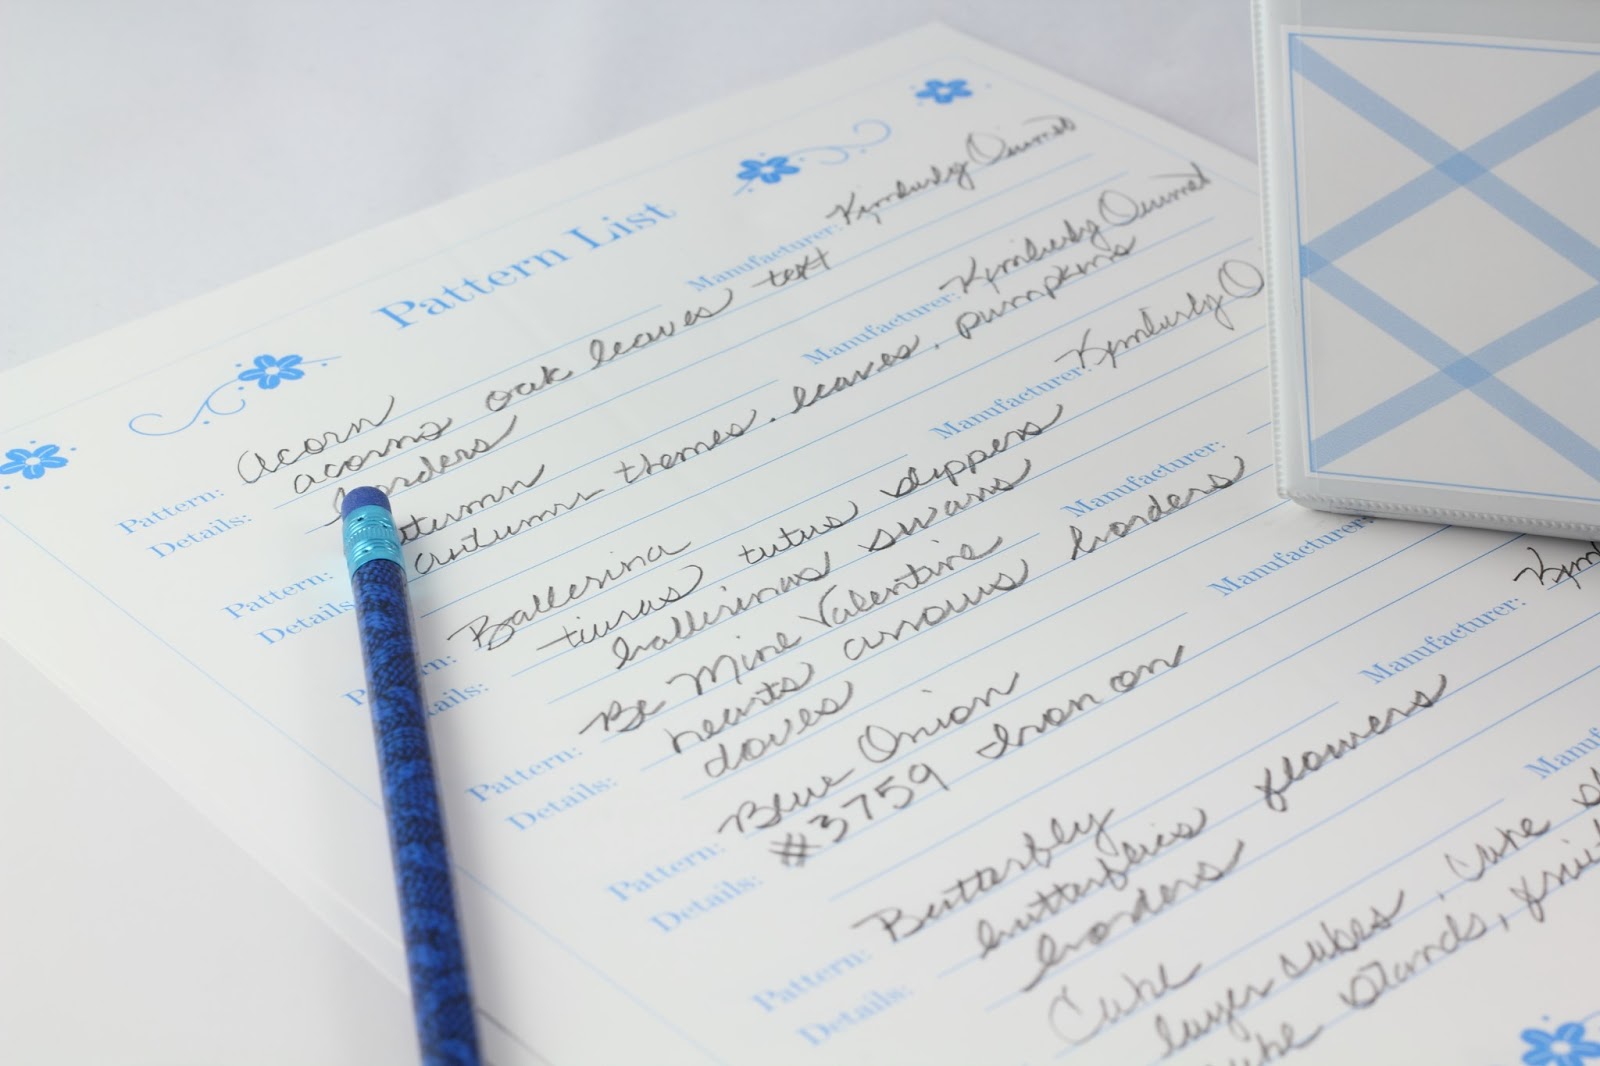 Pattern List
Pattern: Acorn Manufacturer: Kimberly Ouimet
Details: acorns oak leaves text
borders
Pattern: Manufacturer: Kimberly Ouimet
Details: autumn themes, leaves, pumpkins
Ballerina Manufacturer: Kimberly O
tiaras tutus slippers
ballerinas swans
Pattern: Be Mine Valentine Manufacturer:
Details: hearts arrows borders
doves
Pattern: Blue Onion Manufacturer:
Details: #3759 Iron on
Pattern: Butterfly Manufacturer:
Details: butterflies flowers
borders
Cake
layer cakes, cake
stands,